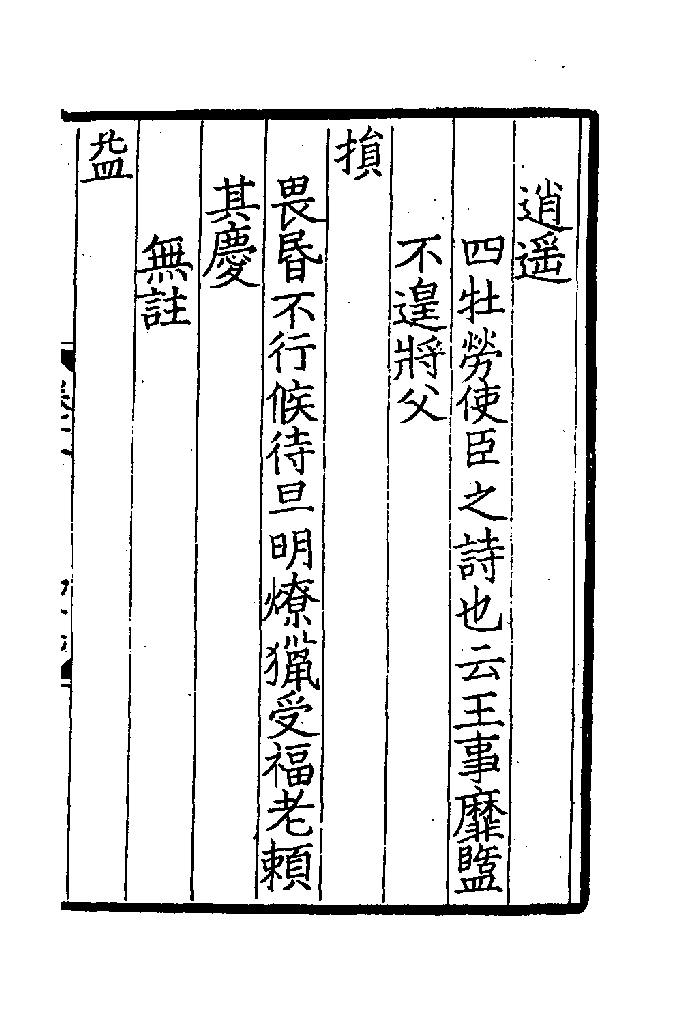 逍遥
四牡勞使臣之詩也云王事靡盬
不遑將父
損
畏昬不行候待旦明燎獵受福老賴
其慶
無註
益